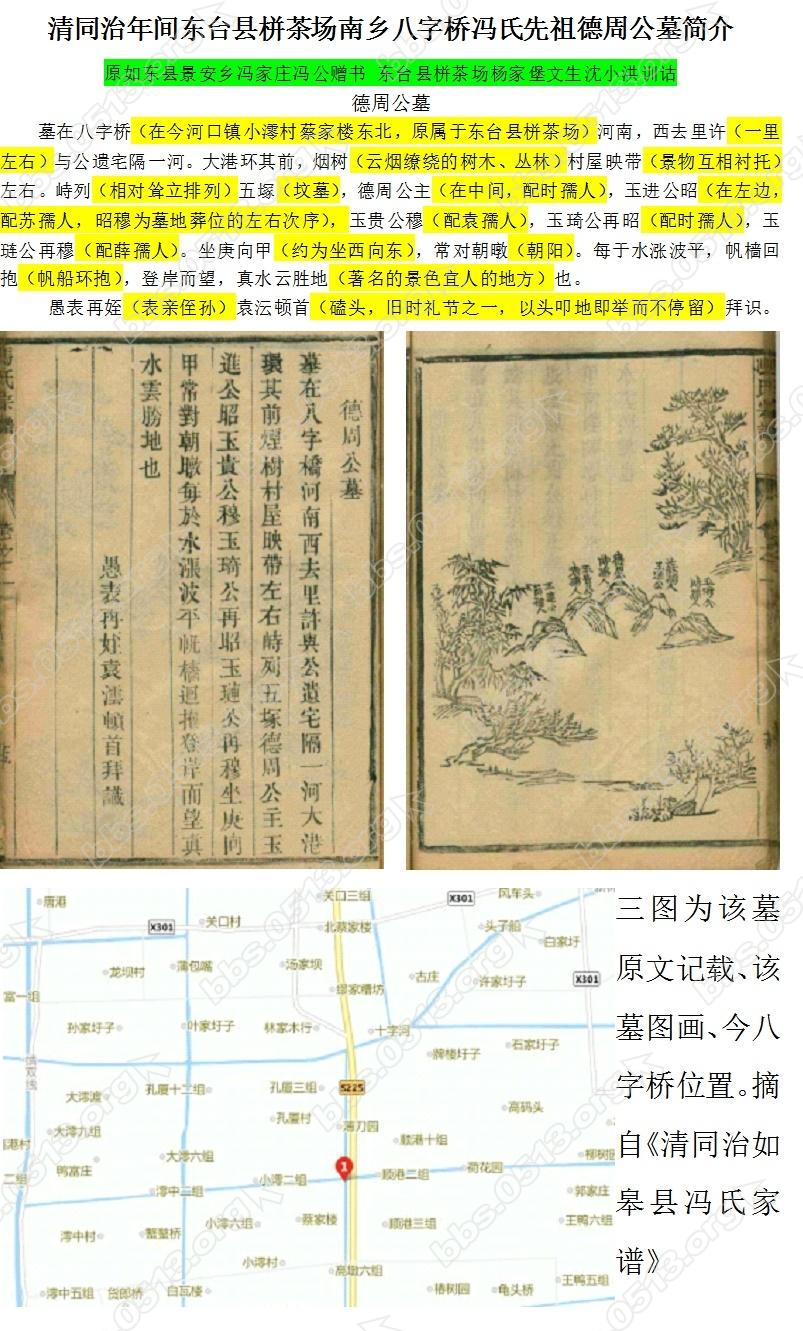 清同治年间东台县栟茶场南乡八字桥冯氏先祖德周公墓简介
原如东县景安乡冯家庄冯公赠书 东台县栟茶场杨家堡文生沈小洪训诂
德周公墓
墓在八字桥（在今河口镇小澪村蔡家楼东北，原属于东台县栟茶场）河南，西去里许（一里
左右）与公遗宅隔一河。大港环其前，烟树（云烟缭绕的树木、丛林）村屋映带（景物互相衬托）
左右。峙列（相对耸立排列）五塚（坟墓），德周公主（在中间，配时孺人），玉进公昭（在左边，
配苏孺人，昭穆为墓地葬位的左右次序），玉贵公穆（配袁孺人），玉琦公再昭（配时孺人），玉
琏公再穆（配薛孺人）。坐庚向甲（约为坐西向东），常对朝暾（朝阳）。每于水涨波平，帆樯回
抱（帆船环抱），登岸而望，真水云胜地（著名的景色宜人的地方）也。
愚表再姪（表亲侄孙）袁沄顿首（磕头，旧时礼节之一，以头叩地即举而不停留）拜识。
德周公墓
墓在八字橋河南西去里許與公遺宅隔一河大港
環其前煙樹村屋映帶左右峙列五塚德周公主玉
進公昭玉貴公穆玉琦公再昭玉璉公再穆坐庚向
甲常對朝暾每於水漲波平帆檣迴抱登岸而望真
水雲勝地也
愚表再姪袁澐頓首拜識
唐港
X301
关口村
关口三组
X301
风车头
北蔡家楼
头子船
白家圩
龙坝村
蒲包嘴
汤家坝
古庄
许家圩子
X301
富一组
缪家糟坊
孙家圩子
叶家圩子
林家木行
十字河
牌楼圩子
石家圩子
大澪渡
孔厦十二组
孔厦三组
S225
高码头
大澪九组
孔厦村
薄刀园
顺港十组
港村
鸭富庄
大澪六组
柳树园
二组
小澪二组
1
顺港二组
荷花园
澪中二组
郭家庄
澪中村
蟹墼桥
小澪六组
蔡家楼
顺港三组
王鸭六组
小澪村
高墩六组
澪中五组
货郎桥
白瓦楼
椿树园
龟头桥
王鸭五组
三图为该墓
原文记载、该
墓图画、今八
字桥位置。摘
自《清同治如
皋县冯氏家
谱》
bbs.0513.org